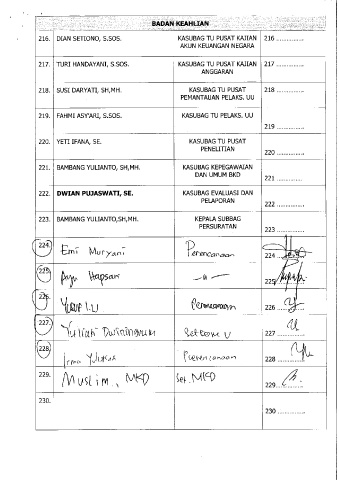 BADAN KEAHLIAN
216. DIAN SETIONO, S.SOS. KASUBAG TU PUSAT KAJIAN AKUN KEUANGAN NEGARA 216 ..............
217. TURI HANDAYANI, S.SOS. KASUBAG TU PUSAT KAJIAN ANGGARAN 217 ..............
218. SUSI DARYATI, SH,MH. KASUBAG TU PUSAT PEMANTAUAN PELAKS. UU 218 ..............
219. FAHMI ASY'ARI, S.SOS. KASUBAG TU PELAKS. UU 219 ..............
220. YETI IFANA, SE. KASUBAG TU PUSAT PENELITIAN 220 ..............
221. BAMBANG YULIANTO, SH,MH. KASUBAG KEPEGAWAIAN DAN UMUM BKD 221 ..............
222. DWIAN PUJASWATI, SE. KASUBAG EVALUASI DAN PELAPORAN 222 ..............
223. BAMBANG YULIANTO,SH,MH. KEPALA SUBBAG PERSURATAN 223 ..............
224. Emi Muryani Perencanaan 224
225. Hapsari -"- 225
226. Perencanaan 226
227. Yuliati Dwiningrum 227
228. Irma Perencanaan 228
229. Muslim, MKD Set. MKD 229
230. 230 ..............